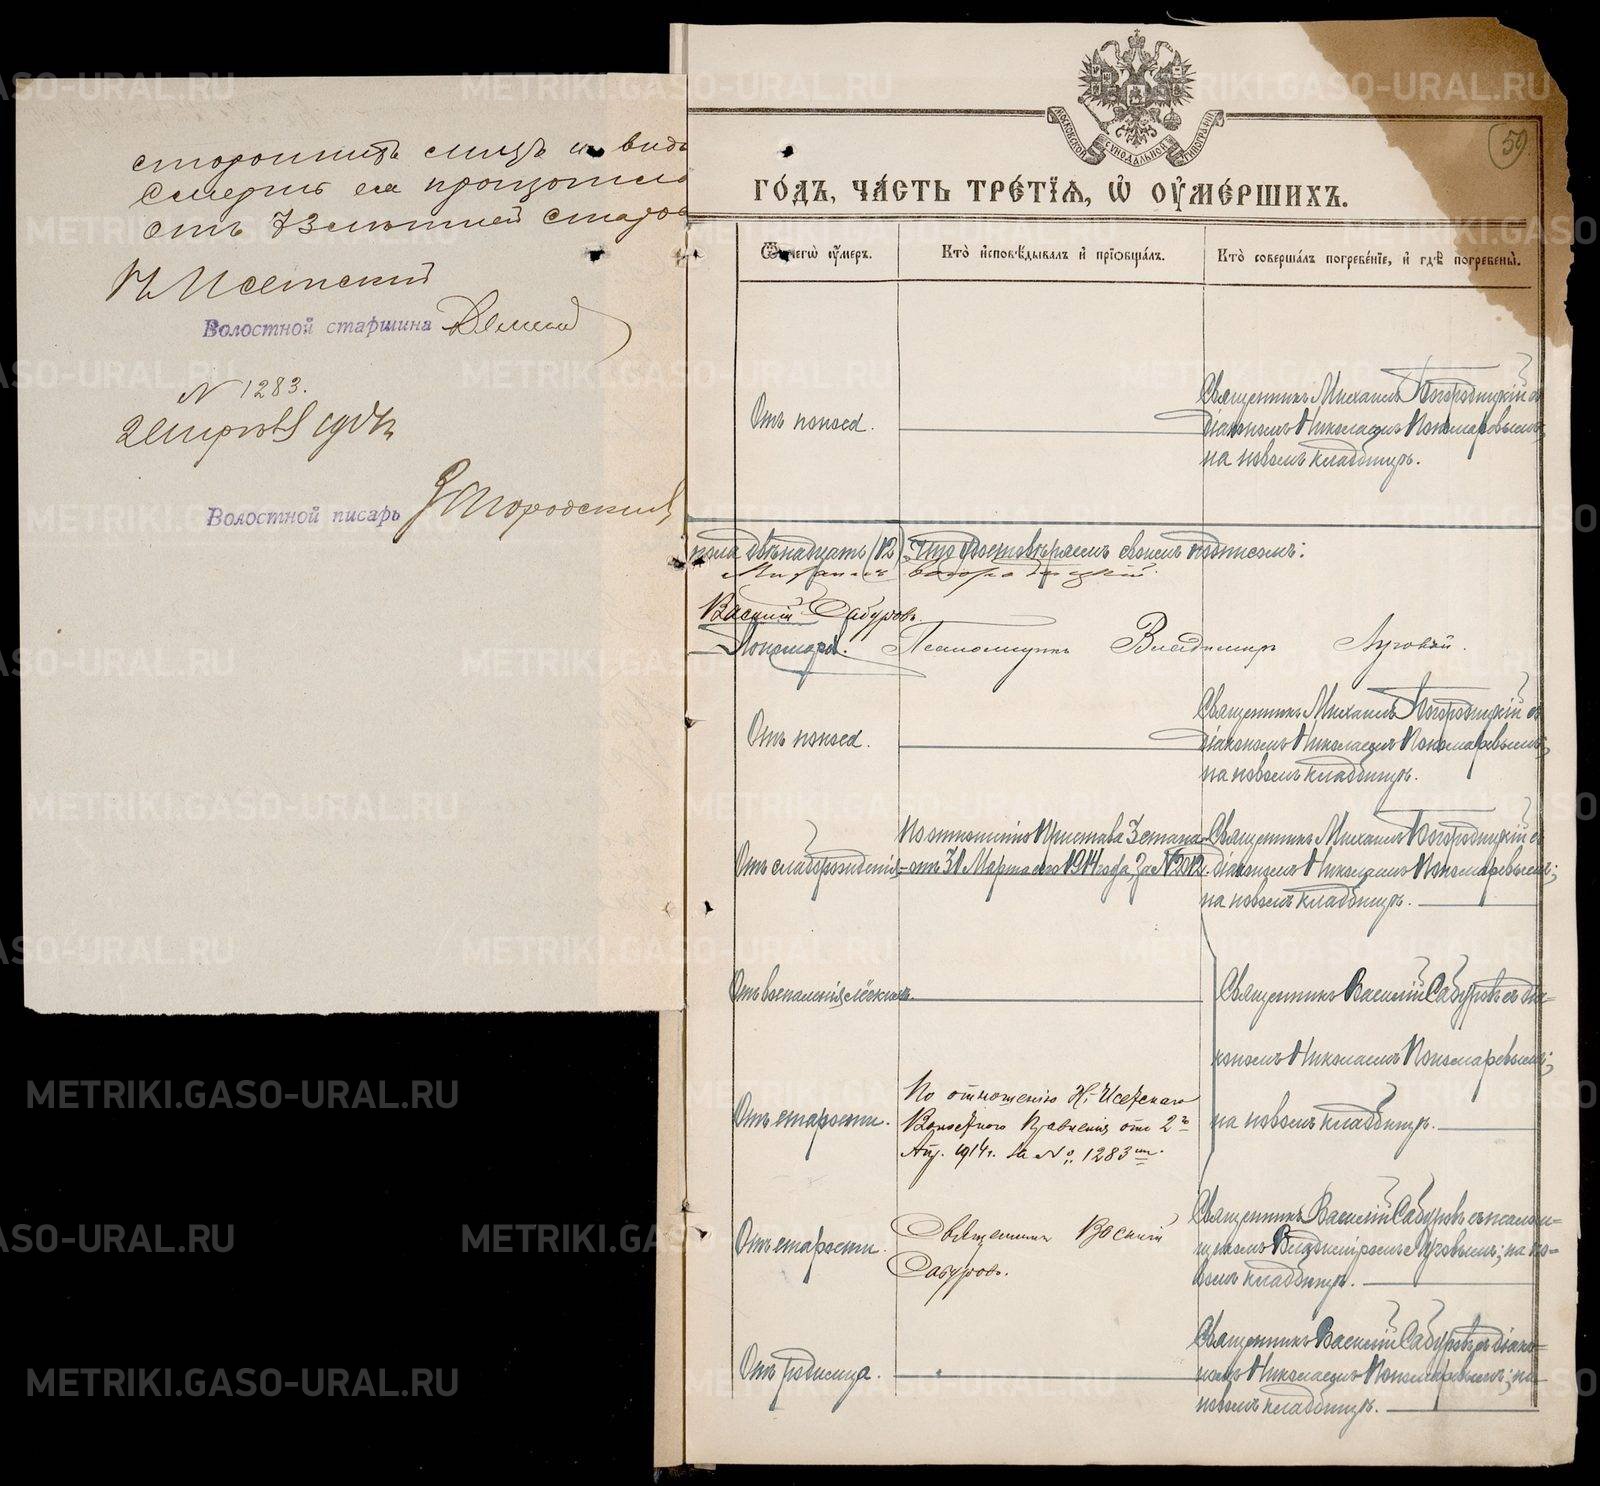 стороннихъ лицъ и видъ
Смерть ея произошла
отъ 73 летней старос
Н Исетский
Волостной старшина
N 1283.
2 апреля 1914 г
Волостной писарь
Загородский
МОСКОВСКОЙ СѴНОДАЛЬНОЙ ТИПОГРАФІИ
59
ГО́ДЪ, ЧА́СТЬ ТРЕ́ТІѦ, Ѡ҆ ОУ҆МЕ́РШИХЪ.
Ѿ чегѡ̀ оу҆́меръ.
Кто̀ и҆сповѣ́дывалъ и҆ прїѡбща́лъ.
Кто̀ соверша́лъ погребе́нїе, и҆ гдѣ̀ погребены̀.
Отъ поноса.
Священникъ Михаилъ Богородицкій съ
діакономъ Николаемъ Пономаревымъ;
на новомъ кладбищѣ.
пола двѣнадцать (12) что удостовѣряемъ своимъ подписомъ:
Михаилъ Богородицкий.
Василій Сабуровъ.
Пономаревъ. Псаломщикъ Владимиръ Луговой.
Отъ поноса.
Священникъ Михаилъ Богородицкій съ
діакономъ Николаемъ Пономаревымъ;
на новомъ кладбищѣ.
Отъ слаборожденія.
По отношенію Пристава 3 стана
отъ 31 Марта сего 1914 года за № 2012.
Священникъ Михаилъ Богородицкій съ
діакономъ Николаемъ Пономаревымъ;
на новомъ кладбищѣ.
Отъ воспаленія лёгкихъ.
Священникъ Василій Сабуровъ съ діа-
кономъ Николаемъ Пономаревымъ;
на новомъ кладбищѣ.
Отъ старости.
По отношенію Н.-Исетскаго
Волостного Правленія отъ 2го
Апр. 1914 г. за № 1283мъ.
Отъ старости.
Священникъ Василій
Сабуровъ.
Священникъ Василій Сабуровъ съ псалом-
щикомъ Владиміромъ Луговымъ; на но-
вомъ кладбищѣ.
Отъ родимца.
Священникъ Василій Сабуровъ съ діако-
номъ Николаемъ Пономаревымъ; на
новомъ кладбищѣ.
METRIKI.GASO-URAL.RU